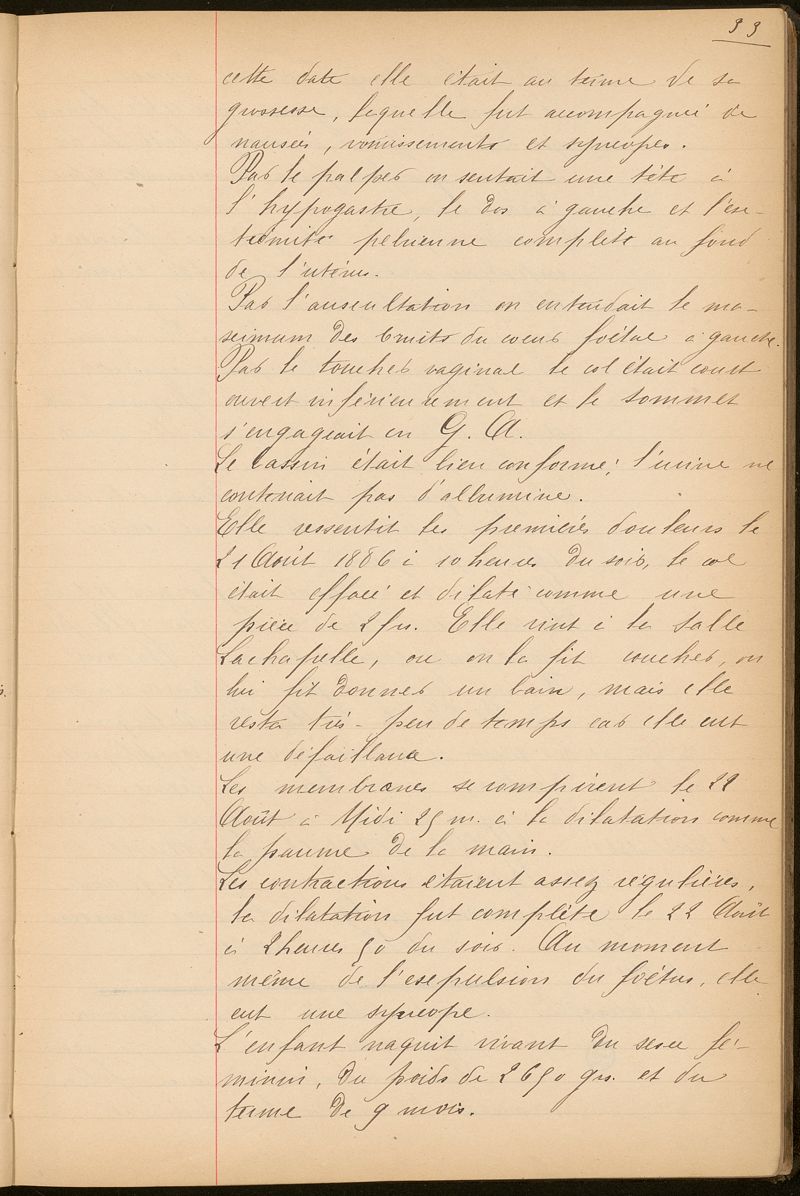 33
cette date elle était au terme de sa
grossesse, laquelle fut accompagnée de
nausées, vomissements et syncopes.
Par le palper on sentait une tête à
l'hypogastre, le dos à gauche et l'ex-
trémité pelvienne complète au fond
de l'utérus.
Par l'auscultation on entendait le ma-
ximum des bruits du coeur foetal à gauche.
Par le toucher vaginal le col était court
ouvert inférieurement et le sommet
s'engageait en G. A.
Le bassin était bien conformé; l'urine ne
contenait pas d'albumine.
Elle ressentit les premières douleurs le
21 Août 1886 à 10 heures du soir, le col
était effacé et dilaté comme une
pièce de 2 frs. Elle vint à la Salle
Lachapelle, ou on la fit coucher, on
lui fit donner un bain, mais elle
resta très-peu de temps car elle eut
une défaillance.
Les membranes se rompirent le 22
Août à Midi 25 m. à la dilatation comme
la paume de la main.
Les contractions étaient assez régulières,
la dilatation fut complète le 22 Août
à 2 heures 50 du soir. Au moment
même de l'expulsion du foetus, elle
eut une syncope.
L'enfant naquit vivant du sexe fé-
minin, du poids de 2650 grs. et du
terme de 9 mois.